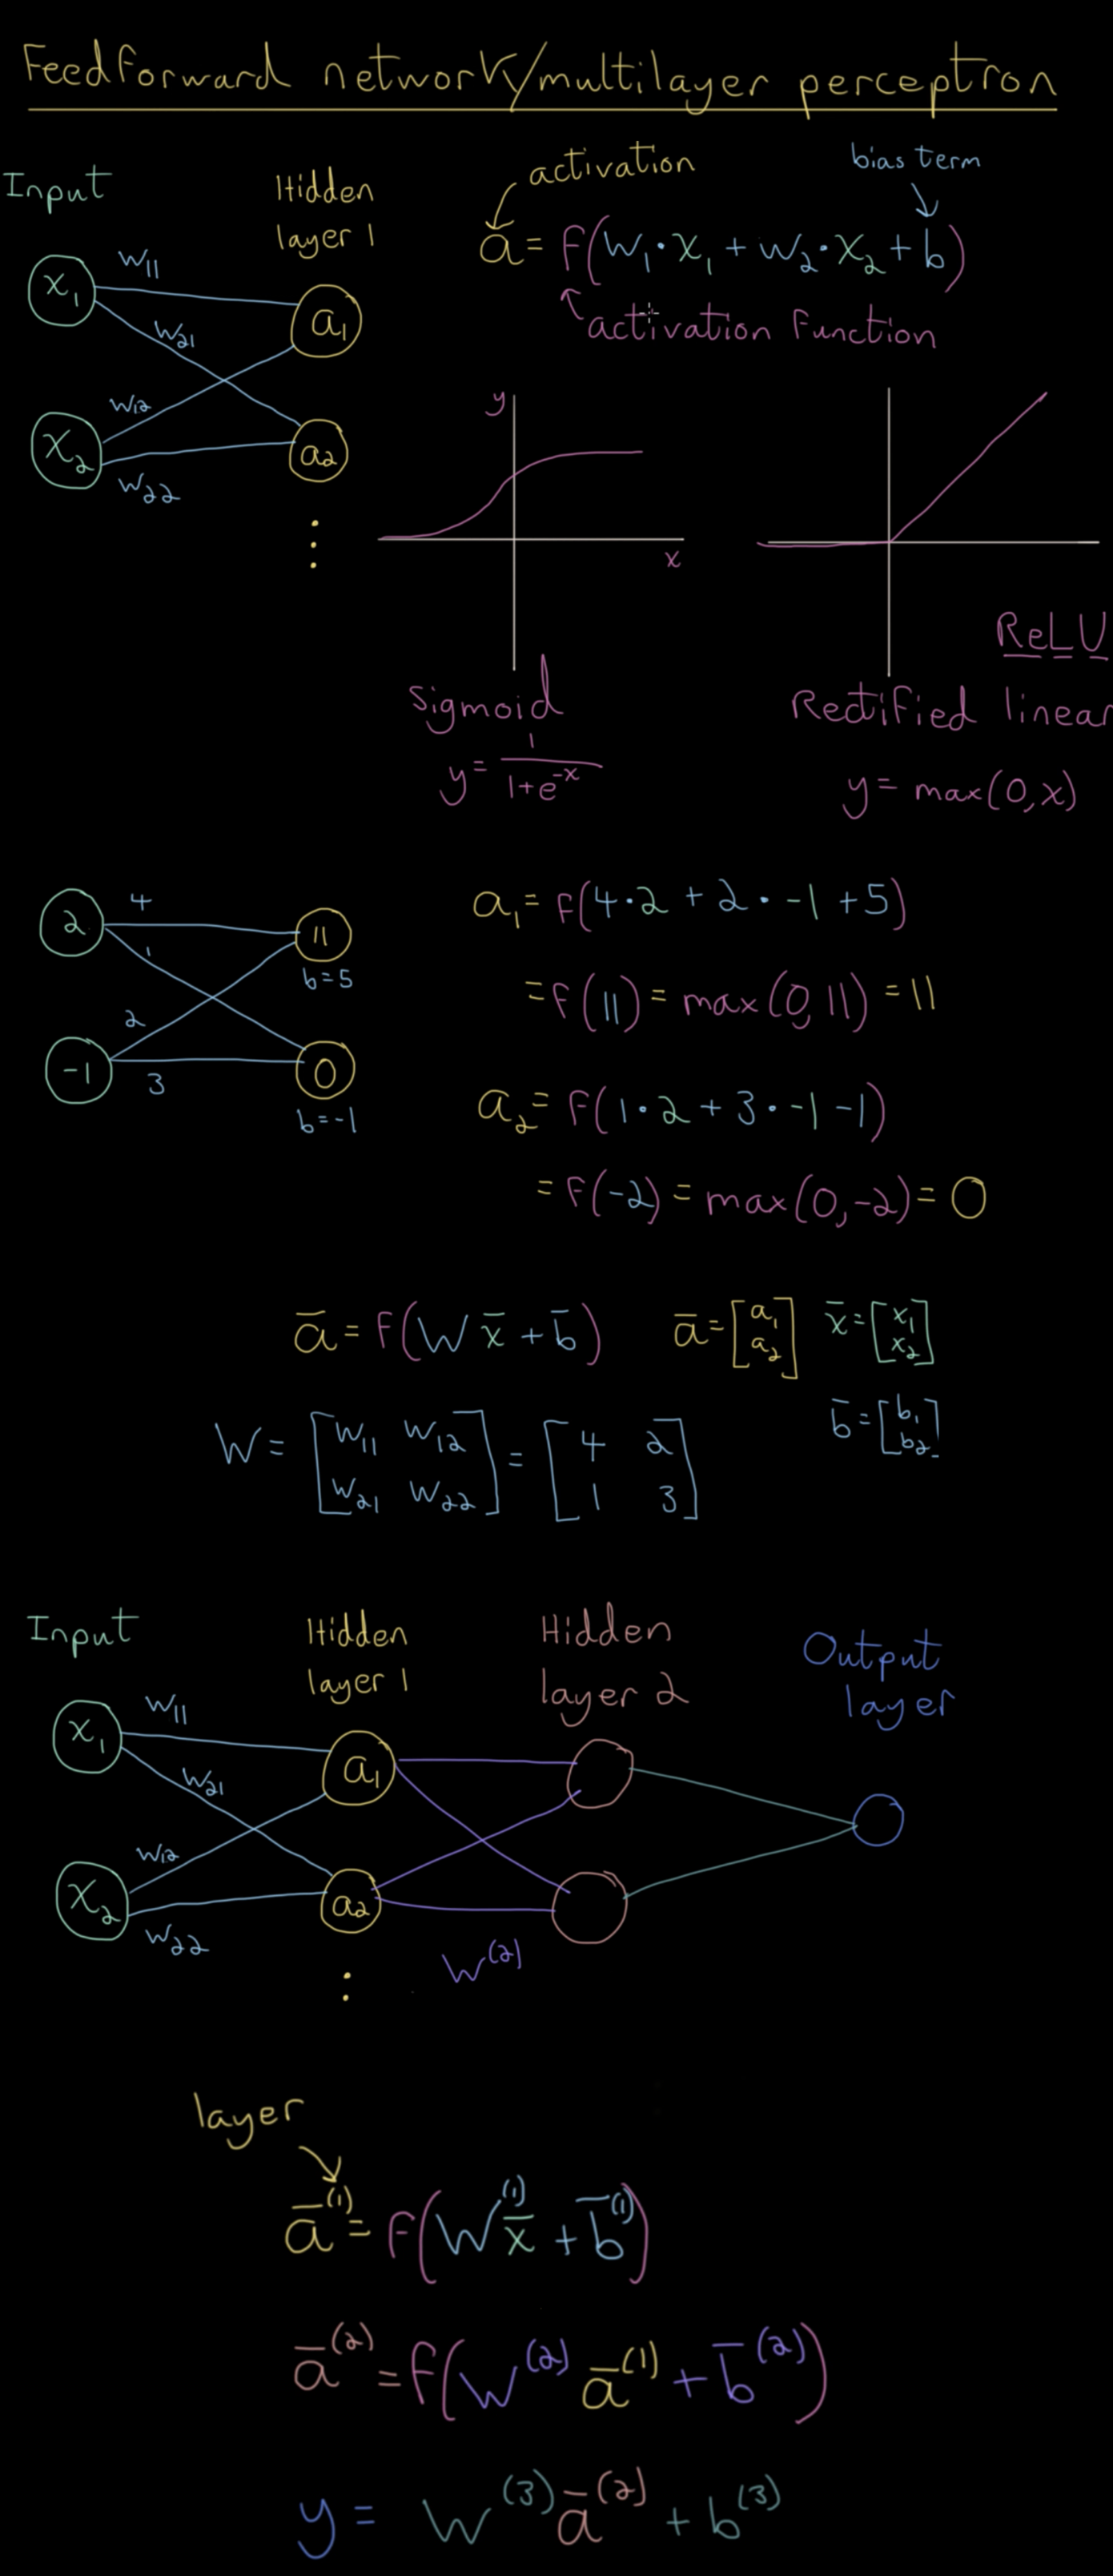 Feedforward network/multilayer perceptron
Input
Hidden
layer 1
activation
bias term
a = f(w₁·x₁ + w₂·x₂ + b)
activation function
x₁
x₂
w₁₁
w₂₁
w₁₂
w₂₂
a₁
a₂
⋮
y
x
Sigmoid
y = 1/(1+e^-x)
ReLU
Rectified linear
y = max(0, x)
2
-1
4
1
2
3
11
b=5
0
b=-1
a₁ = f(4·2 + 2·-1 + 5)
= f(11) = max(0, 11) = 11
a₂ = f(1·2 + 3·-1 -1)
= f(-2) = max(0, -2) = 0
a̅ = f(W x̅ + b̅)
a̅ = [a₁ a₂]
x̅ = [x₁ x₂]
b̅ = [b₁ b₂]
W = [w₁₁ w₁₂ w₂₁ w₂₂] = [4 2 1 3]
Input
Hidden
layer 1
Hidden
layer 2
Output
layer
x₁
x₂
w₁₁
w₂₁
w₁₂
w₂₂
a₁
a₂
:
W⁽²⁾
layer
a̅⁽¹⁾ = f(W⁽¹⁾ x̅ + b̅⁽¹⁾)
a̅⁽²⁾ = f(W⁽²⁾ a̅⁽¹⁾ + b̅⁽²⁾)
y = W⁽³⁾ a̅⁽²⁾ + b⁽³⁾